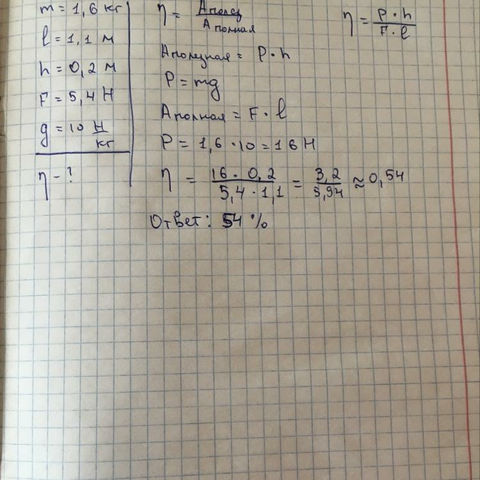 m = 1,6 кг
l = 1,1 м
h = 0,2 м
F = 5,4 Н
g = 10 Н/кг
η - ?
η = Aполез / Aполная
Aполезная = P · h
P = mg
Aполная = F · l
P = 1,6 · 10 = 16 Н
η = 16 · 0,2 / 5,4 · 1,1 = 3,2 / 5,94 ≈ 0,54
Ответ: 54 %
η = P · h / F · l